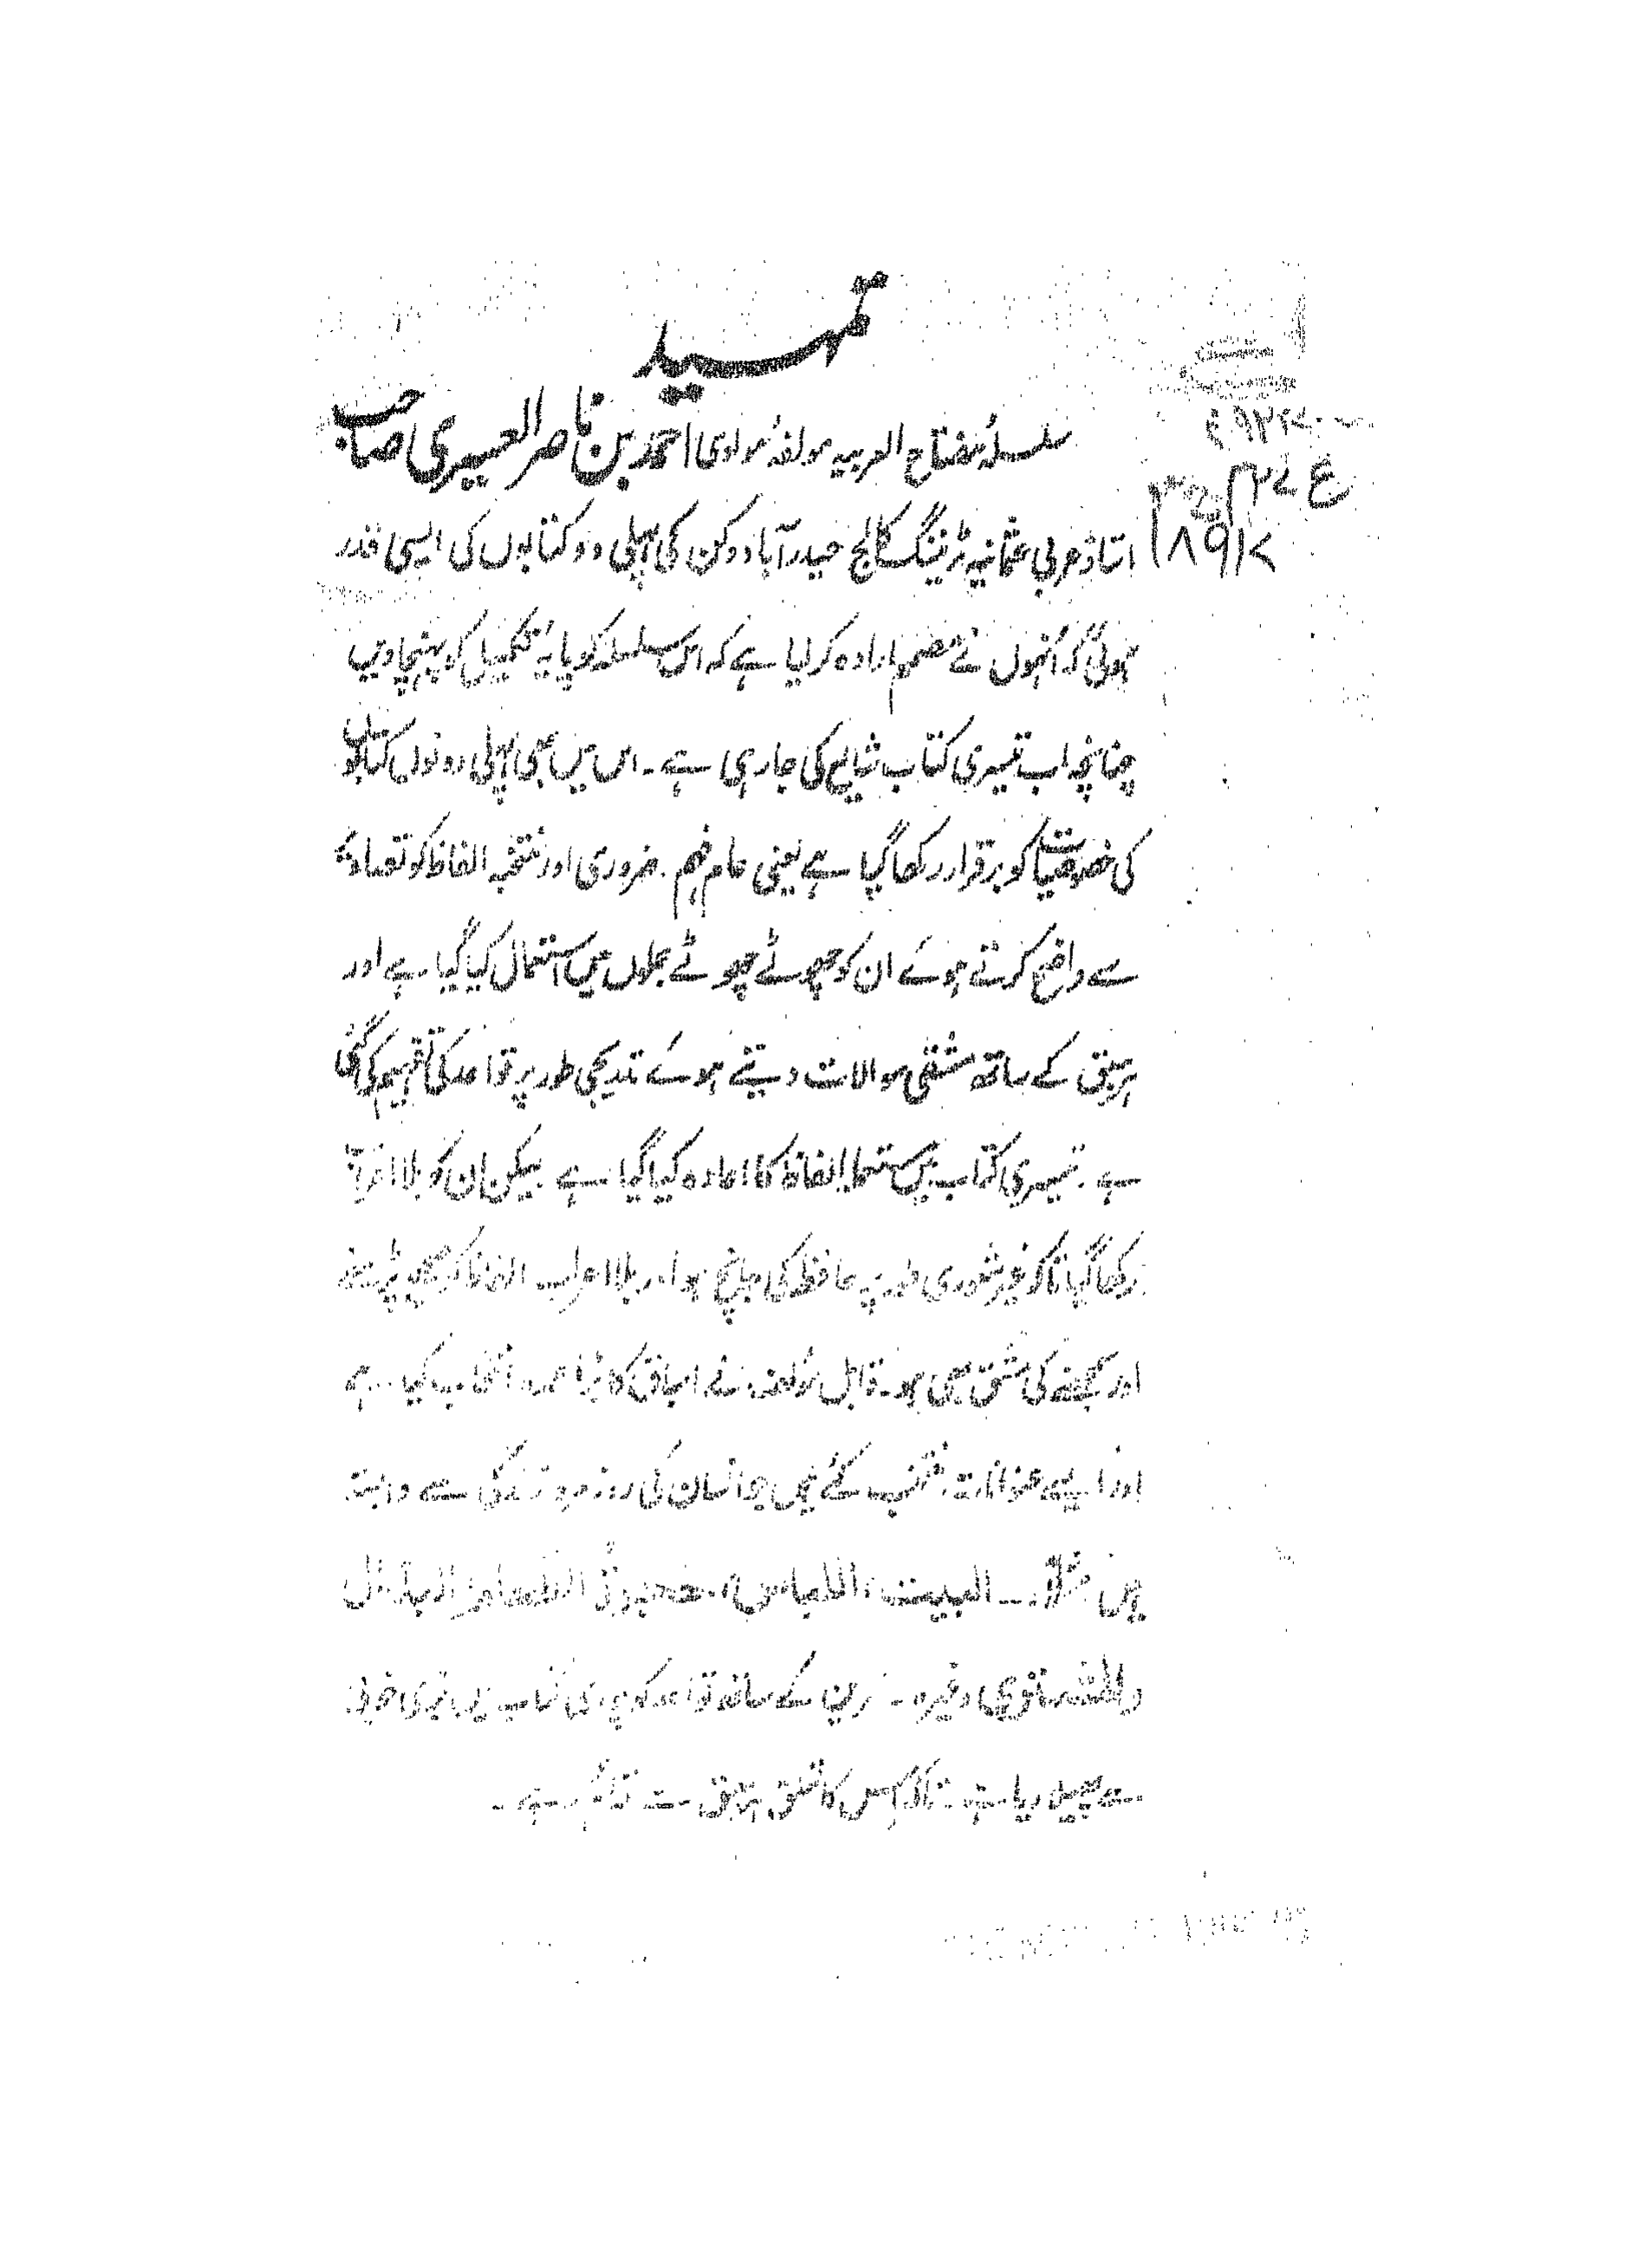 تمہید
سلسلۂ مفتاح العربیہ مولفہٗ مولوی احمد بن ناصر العسیری صاحب
استاذ عربی عثمانیہ ٹریننگ کالج حیدرآباد دکن کی پہلی دو کتابوں کی ایسی قدر
ہوئی کہ اُنہوں نے مصمم ارادہ کرلیا ہے کہ اس سلسلہ کو پایۂ تکمیل کو پہنچادیں
چنانچہ اب تیسری کتاب شایع کی جارہی ہے ۔ اس میں بھی پہلی دونوں کتابوں
کی خصوصیات کو برقرار رکھا گیا ہے یعنی عام فہم ۔ ضروری اور منتخبہ الفاظ کو
سے واضح کرتے ہوئے ان کو چھوٹے چھوٹے جملوں میں استعمال کیا گیا ہے اور
ہر سبق کے ساتھ مشقی سوالات دیتے ہوئے تدریجی طور پر قواعد کی تفہیم کی گئی
ہے ۔ تیسری کتاب میں مستعملہ الفاظ کا اعادہ کیا گیا ہے لیکن ان کو بلا اعراب
رکھا گیا تاکہ غیر شعوری طور پر حافظہ کی جانچ ہو اور بلا اعراب الفاظ کو صحیح پڑھنے
اور سمجھنے کی مشق بھی ہو ۔ قابل مؤلف نے اسباق کا بڑا عمدہ انتخاب کیا ہے
اور ایسے عنوانات منتخب کئے ہیں جو انسان کی روز مرہ زندگی سے وابستہ
ہیں مثلاً ۔ البیت ، اللباس ،
والمشتری وغیرہ ۔ کے ساتھ قواعد کو پوری کتاب میں بڑی خوبی
سے پھیلا دیا ہے ۔ تاکہ اس کا تعلق ہر سبق سے قائم رہے ۔
ع ۴۲۷
۱۸۹۱۲